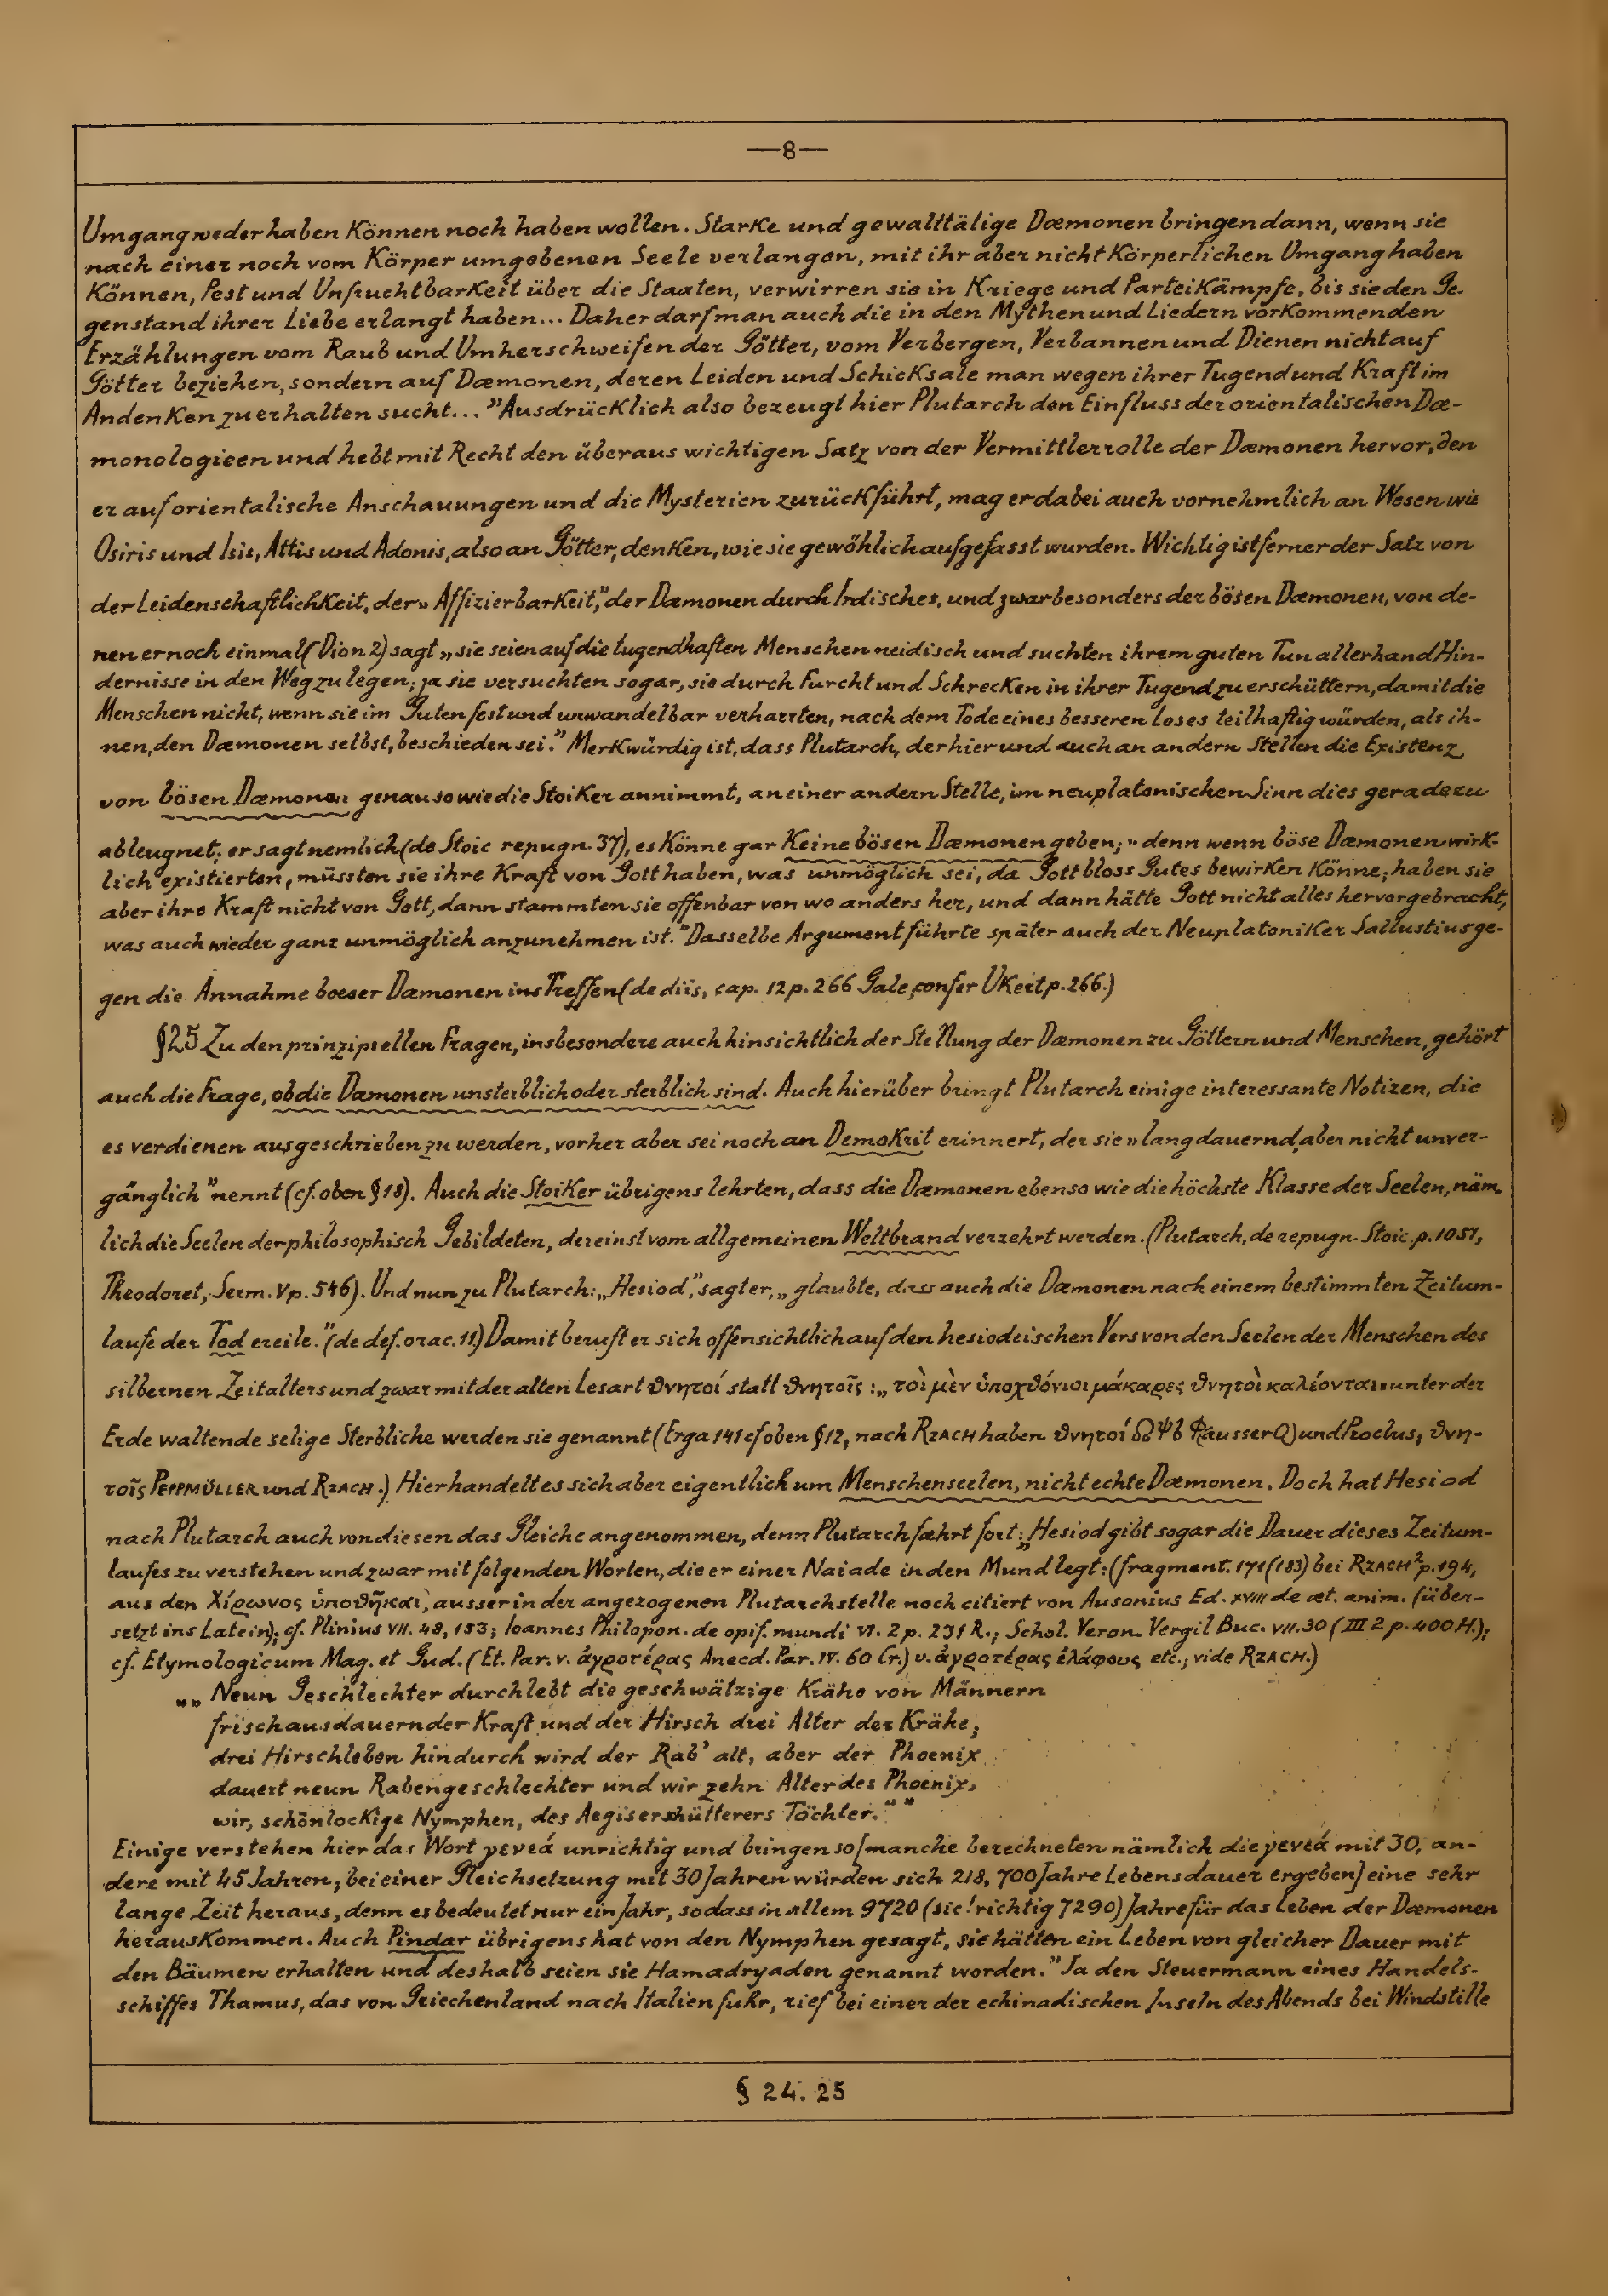 —8—
Umgang weder haben können noch haben wollen. Starke und gewalttätige Dæmonen bringen dann, wenn sie
nach einer noch vom Körper umgebenen Seele verlangen, mit ihr aber nicht körperlichen Umgang haben
können, Pest und Unfruchtbarkeit über die Staaten, verwirren sie in Kriege und Parteikämpfe, bis sie den Ge-
genstand ihrer Liebe erlangt haben... Daher darf man auch die in den Mythen und Liedern vorkommenden
Erzählungen vom Raub und Umherschweifen der Götter, vom Verbergen, Verbannen und Dienen nicht auf
Götter beziehen, sondern auf Dæmonen, deren Leiden und Schicksale man wegen ihrer Tugend und Kraft im
Andenken zu erhalten sucht..." Ausdrücklich also bezeugt hier Plutarch den Einfluss der orientalischen Dæ-
monologieen und hebt mit Recht den überaus wichtigen Satz von der Vermittlerrolle der Dæmonen hervor, den
er auf orientalische Anschauungen und die Mysterien zurückführt, mag er dabei auch vornehmlich an Wesen wie
Osiris und Isis, Attis und Adonis, also an Götter, denken, wie sie gewöhlich aufgefasst wurden. Wichtig ist ferner der Satz von
der Leidenschaftlichkeit, der „Affizierbarkeit," der Dæmonen durch Irdisches, und zwar besonders der bösen Dæmonen, von de-
nen er noch einmal (Dion 2) sagt „sie seien auf die tugendhaften Menschen neidisch und suchten ihrem guten Tun allerhand Hin-
dernisse in den Weg zu legen; ja sie versuchten sogar, sie durch Furcht und Schrecken in ihrer Tugend zu erschüttern, damit die
Menschen nicht, wenn sie im Guten fest und unwandelbar verharrten, nach dem Tode eines besseren Loses teilhaftig würden, als ih-
nen, den Dæmonen selbst, beschieden sei." Merkwürdig ist, dass Plutarch, der hier und auch an andern Stellen die Existenz
von bösen Dæmonen genau so wie die Stoiker annimmt, an einer andern Stelle, im neuplatonischen Sinn dies geradezu
ableugnet; er sagt nemlich (de Stoic repugn. 37), es könne gar keine bösen Dæmonen geben; „denn wenn böse Dæmonen wirk-
lich existierten, müssten sie ihre Kraft von Gott haben, was unmöglich sei, da Gott bloss Gutes bewirken könne; haben sie
aber ihre Kraft nicht von Gott, dann stammten sie offenbar von wo anders her, und dann hätte Gott nicht alles hervorgebracht,
was auch wieder ganz unmöglich anzunehmen ist." Dasselbe Argument führte später auch der Neuplatoniker Sallustius ge-
gen die Annahme boeser Dæmonen ins Treffen (de diis, cap. 12 p. 266 Gale, confer Ukert p. 266.)
§25 Zu den prinzipiellen Fragen, insbesondere auch hinsichtlich der Stellung der Dæmonen zu Göttern und Menschen, gehört
auch die Frage, ob die Dæmonen unsterblich oder sterblich sind. Auch hierüber bringt Plutarch einige interessante Notizen, die
es verdienen ausgeschrieben zu werden, vorher aber sei noch an Demokrit erinnert, der sie „langdauernd, aber nicht unver-
gänglich" nennt (cf. oben § 18). Auch die Stoiker übrigens lehrten, dass die Dæmonen ebenso wie die höchste Klasse der Seelen, näm-
lich die Seelen der philosophisch Gebildeten, dereinst vom allgemeinen Weltbrand verzehrt werden. (Plutarch, de repugn. Stoic. p. 1051,
Theodoret, Serm. V p. 546). Und nun zu Plutarch: „Hesiod," sagt er, „glaubte, dass auch die Dæmonen nach einem bestimmten Zeitum-
laufe der Tod ereile." (de def. orac. 11.) Damit beruft er sich offensichtlich auf den hesiodeischen Vers von den Seelen der Menschen des
silbernen Zeitalters und zwar mit der alten Lesart θνητοί statt θνητοῖς: „τοὶ μὲν ὑποχθόνιοι μάκαρες θνητοὶ καλέονται = unter der
Erde waltende selige Sterbliche werden sie genannt (Erga 141 cf oben § 12, nach RZACH haben θνητοί Ω Ψ b Φ (ausser Q) und Proclus, θνη-
τοῖς PEPPMÜLLER und RZACH.) Hier handelt es sich aber eigentlich um Menschenseelen, nicht echte Dæmonen. Doch hat Hesiod
nach Plutarch auch von diesen das Gleiche angenommen, denn Plutarch fæhrt fort: „Hesiod gibt sogar die Dauer dieses Zeitum-
laufes zu verstehen und zwar mit folgenden Worten, die er einer Naiade in den Mund legt: (fragment. 171 (183) bei RZACH² p. 194,
aus den Χίρωνος ὑποθῆκαι, ausser in der angezogenen Plutarchstelle noch citiert von Ausonius Ed. XVIII de æt. anim. (über-
setzt ins Latein); cf. Plinius VII. 48, 153; Ioannes Philopon. de opif. mundi VI. 2 p. 231 R.; Schol. Veron. Vergil Buc. VII. 30 (III 2 p. 400 H.);
cf. Etymologicum Mag. et Gud. (Et. Par. v. ἀγροτέρας Anecd. Par. IV. 60 Cr.) v. ἀγροτέρας ἐλάφους etc.; vide RZACH.)
„„Neun Geschlechter durchlebt die geschwätzige Krähe von Männern
frischausdauernder Kraft und der Hirsch drei Alter der Krähe;
drei Hirschleben hindurch wird der Rab' alt, aber der Phoenix
dauert neun Rabengeschlechter und wir zehn Alter des Phoenix,
wir, schönlockige Nymphen, des Aegiserschütterers Töchter.""
Einige verstehen hier das Wort γενεά unrichtig und bringen so [manche berechneten nämlich die γενεά mit 30, an-
dere mit 45 Jahren; bei einer Gleichsetzung mit 30 Jahren würden sich 218,700 Jahre Lebensdauer ergeben] eine sehr
lange Zeit heraus, denn es bedeutet nur ein Jahr, sodass in allem 9720 (sic! richtig 7290) Jahre für das Leben der Dæmonen
herauskommen. Auch Pindar übrigens hat von den Nymphen gesagt, sie hätten ein Leben von gleicher Dauer mit
den Bäumen erhalten und deshalb seien sie Hamadryaden genannt worden." Ja den Steuermann eines Handels-
schiffes Thamus, das von Griechenland nach Italien fuhr, rief bei einer der echinadischen Inseln des Abends bei Windstille
§ 24. 25